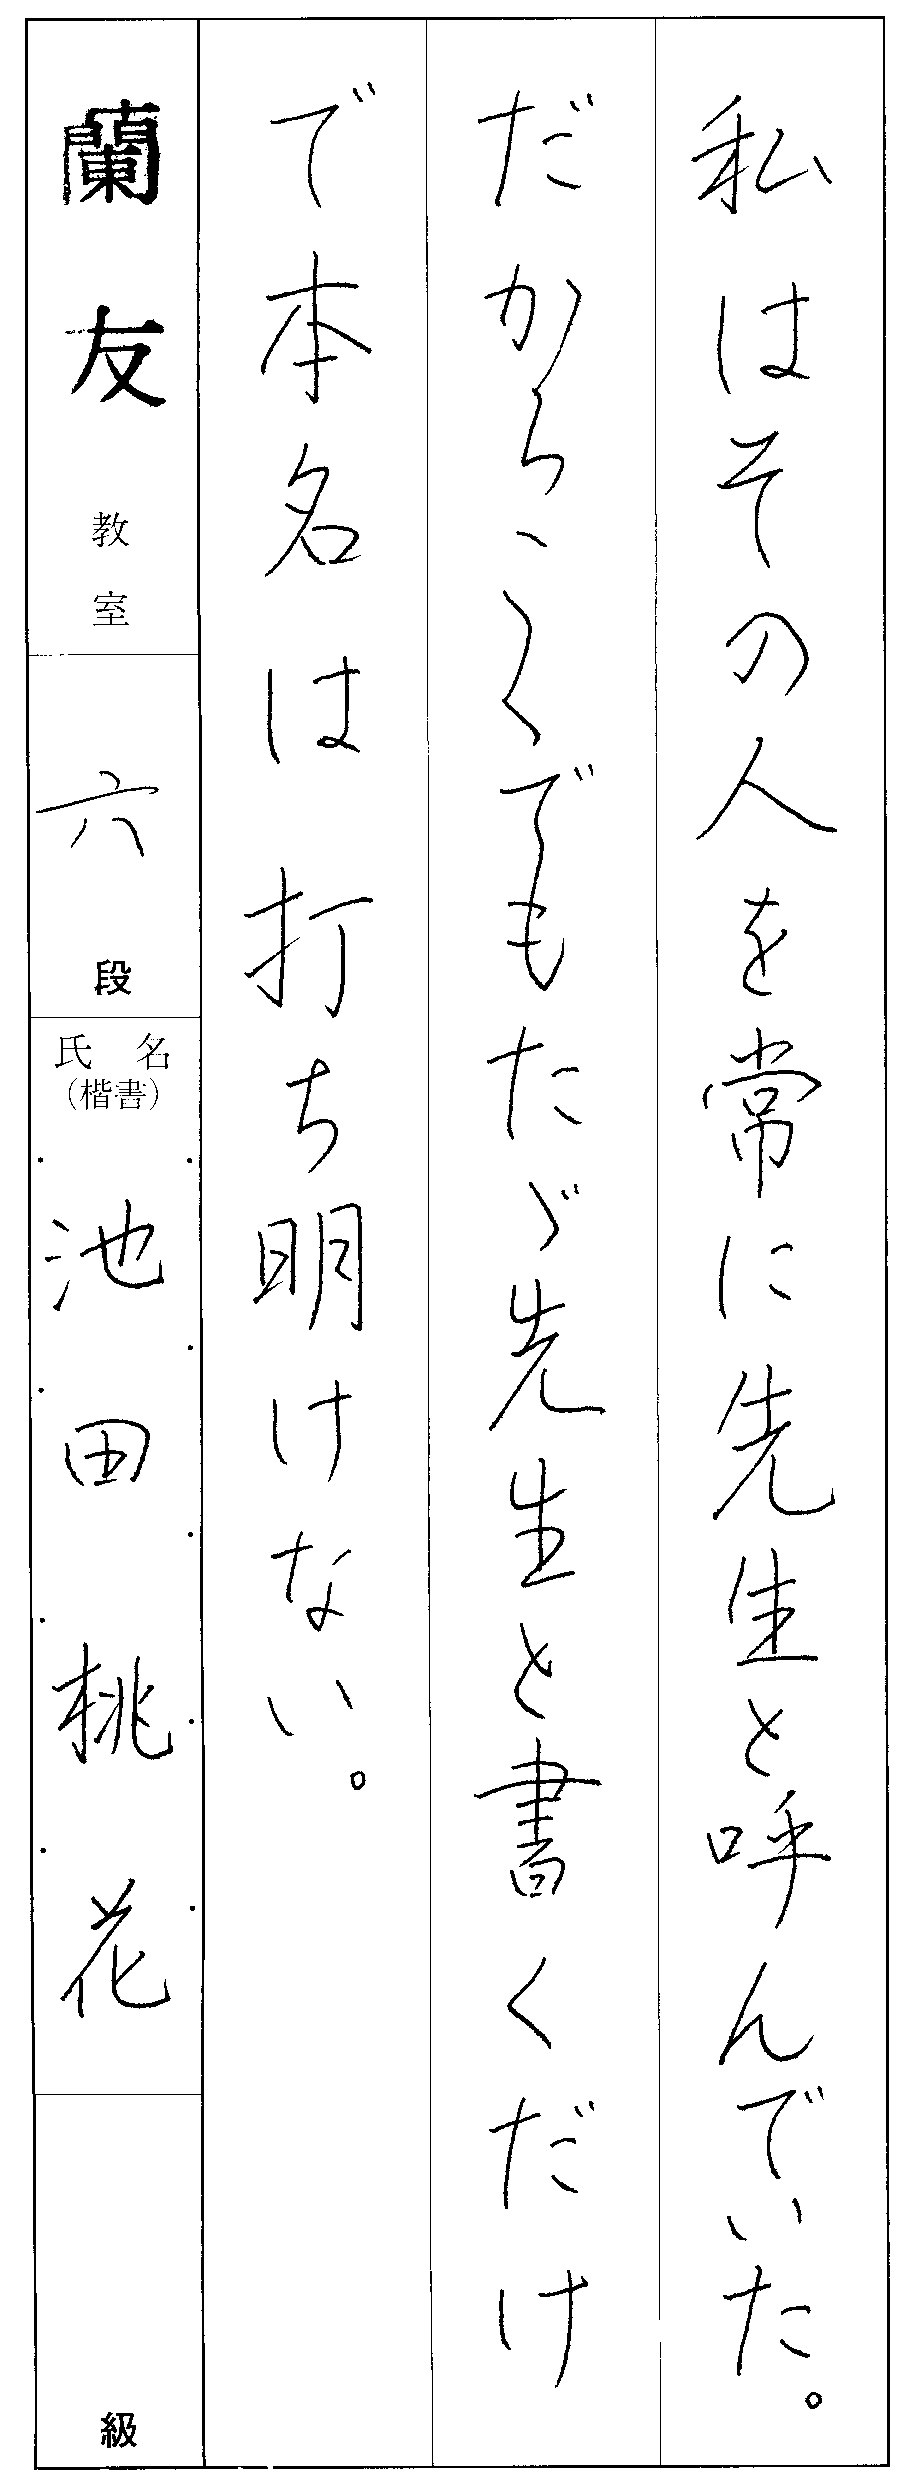 私はその人を常に先生と呼んでいた。
だからこゝでもたゞ先生と書くだけ
で本名は打ち明けない。
蘭友教室
六段
氏名
（楷書）
池田桃花
級